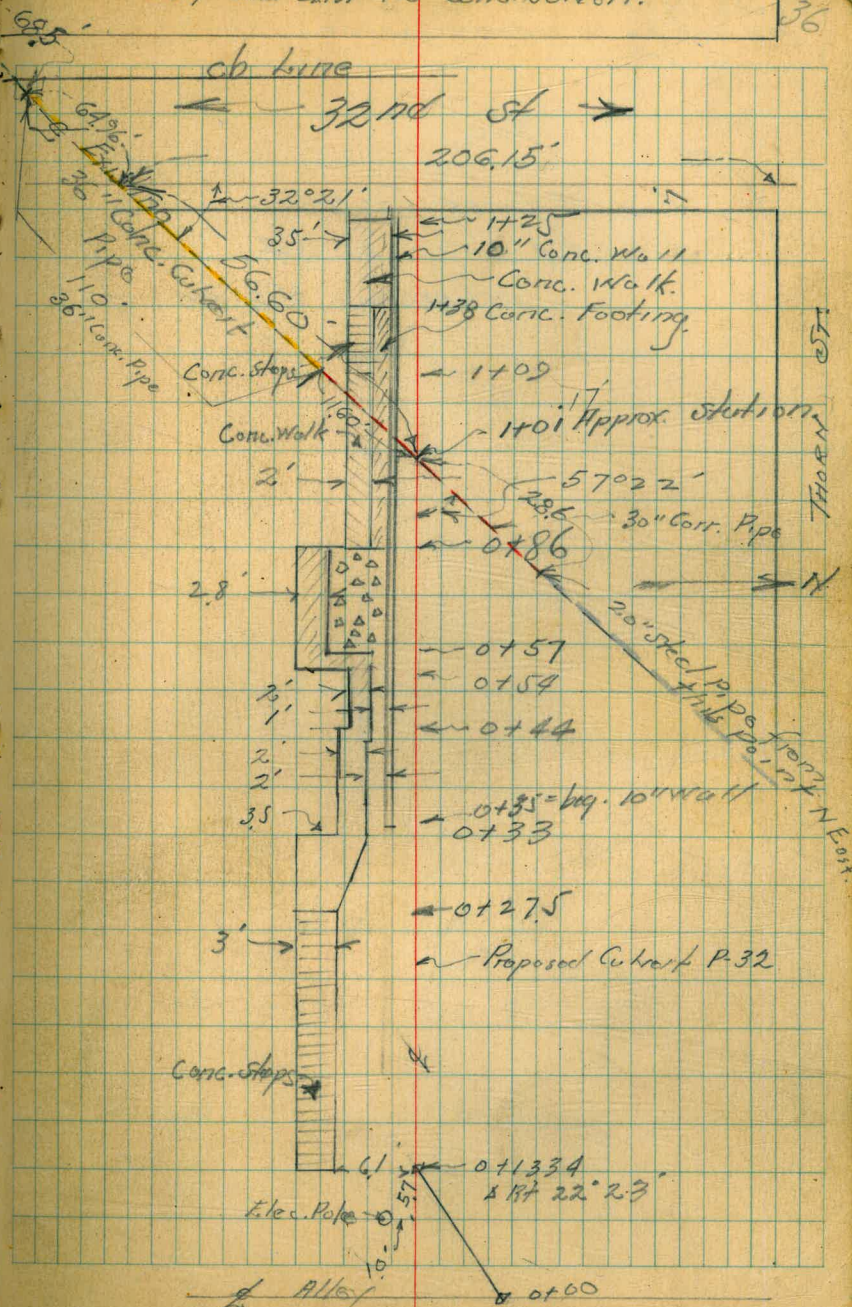 36
68.5'
cb Line
32nd St
206.15'
64.96'
Existing
36" Conc. Culvert
Pipe
110'
36" Conc. Pipe
32°21'
7
35'
1+25
10" Conc. Wall
Conc. Walk.
56.60
1+38 Conc. Footing.
THORN ST.
Conc. Steps
1+09
17'
1+01 Approx. station
11.60'
Conc. Walk
2'
57°22'
28.6
30" Corr. Pipe
0+86
N
2.8'
20" Steel Pipe from
this point N East.
0+57
0+54
2'
1'
0+44
2'
2'
0+35 = beg. 10" Wall
3.5
0+33
0+27.5
3'
Proposed Culvert P-32
Conc. Steps
6.1'
0+13.34
Δ Rt 22°23'
5.7'
Elec. Pole
1.0'
℄ Alley
0+00